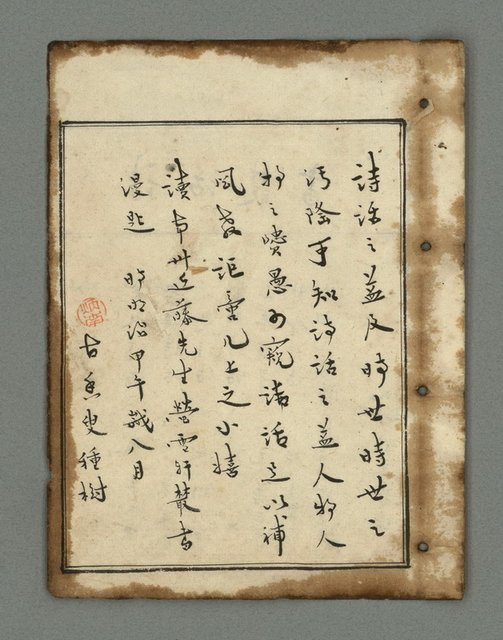 詩話之益及時世時世之
汚隆乎知詩話之益人物人
物之賢愚可窺諸話足以補
風教詎啻几上之小禧
讀市卅近藤先生螢雪軒叢書
漫題 時明治甲午歲八月
古香叟種樹